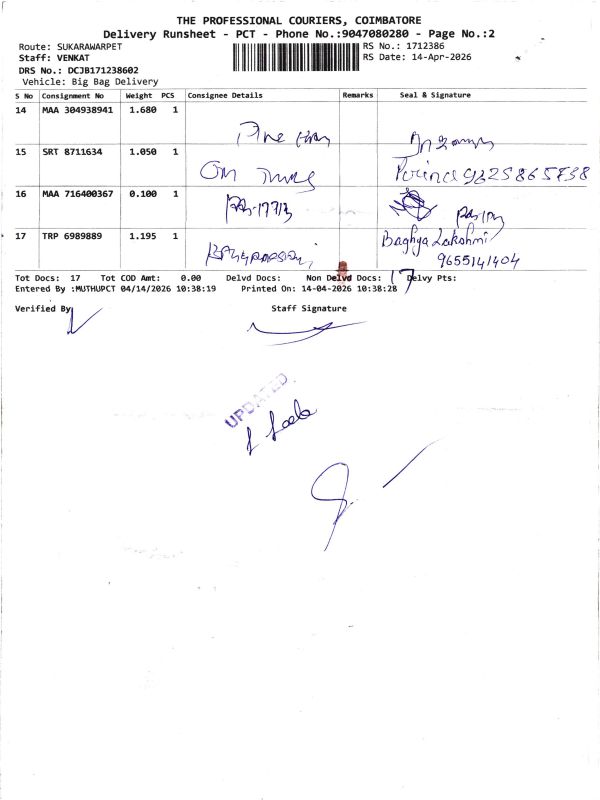 THE PROFESSIONAL COURIERS, COIMBATORE
Delivery Runsheet - PCT - Phone No.:9047080280 - Page No.:2
Route: SUKARAWARPET
RS No.: 1712386
Staff: VENKAT
RS Date: 14-Apr-2026
DRS No.: DCJB171238602
Vehicle: Big Bag Delivery
S No Consignment No Weight PCS Consignee Details Remarks Seal & Signature
14 MAA 304938941 1.680 1
15 SRT 8711634 1.050 1
16 MAA 716400367 0.100 1
17 TRP 6989889 1.195 1
Baghya Lakshmi
9655141404
Tot Docs: 17 Tot COD Amt: 0.00 Delvd Docs: Non Delvd Docs: 17 Delvy Pts:
Entered By :MUTHUPCT 04/14/2026 10:38:19 Printed On: 14-04-2026 10:38:28
Verified By
Staff Signature
UPDATED